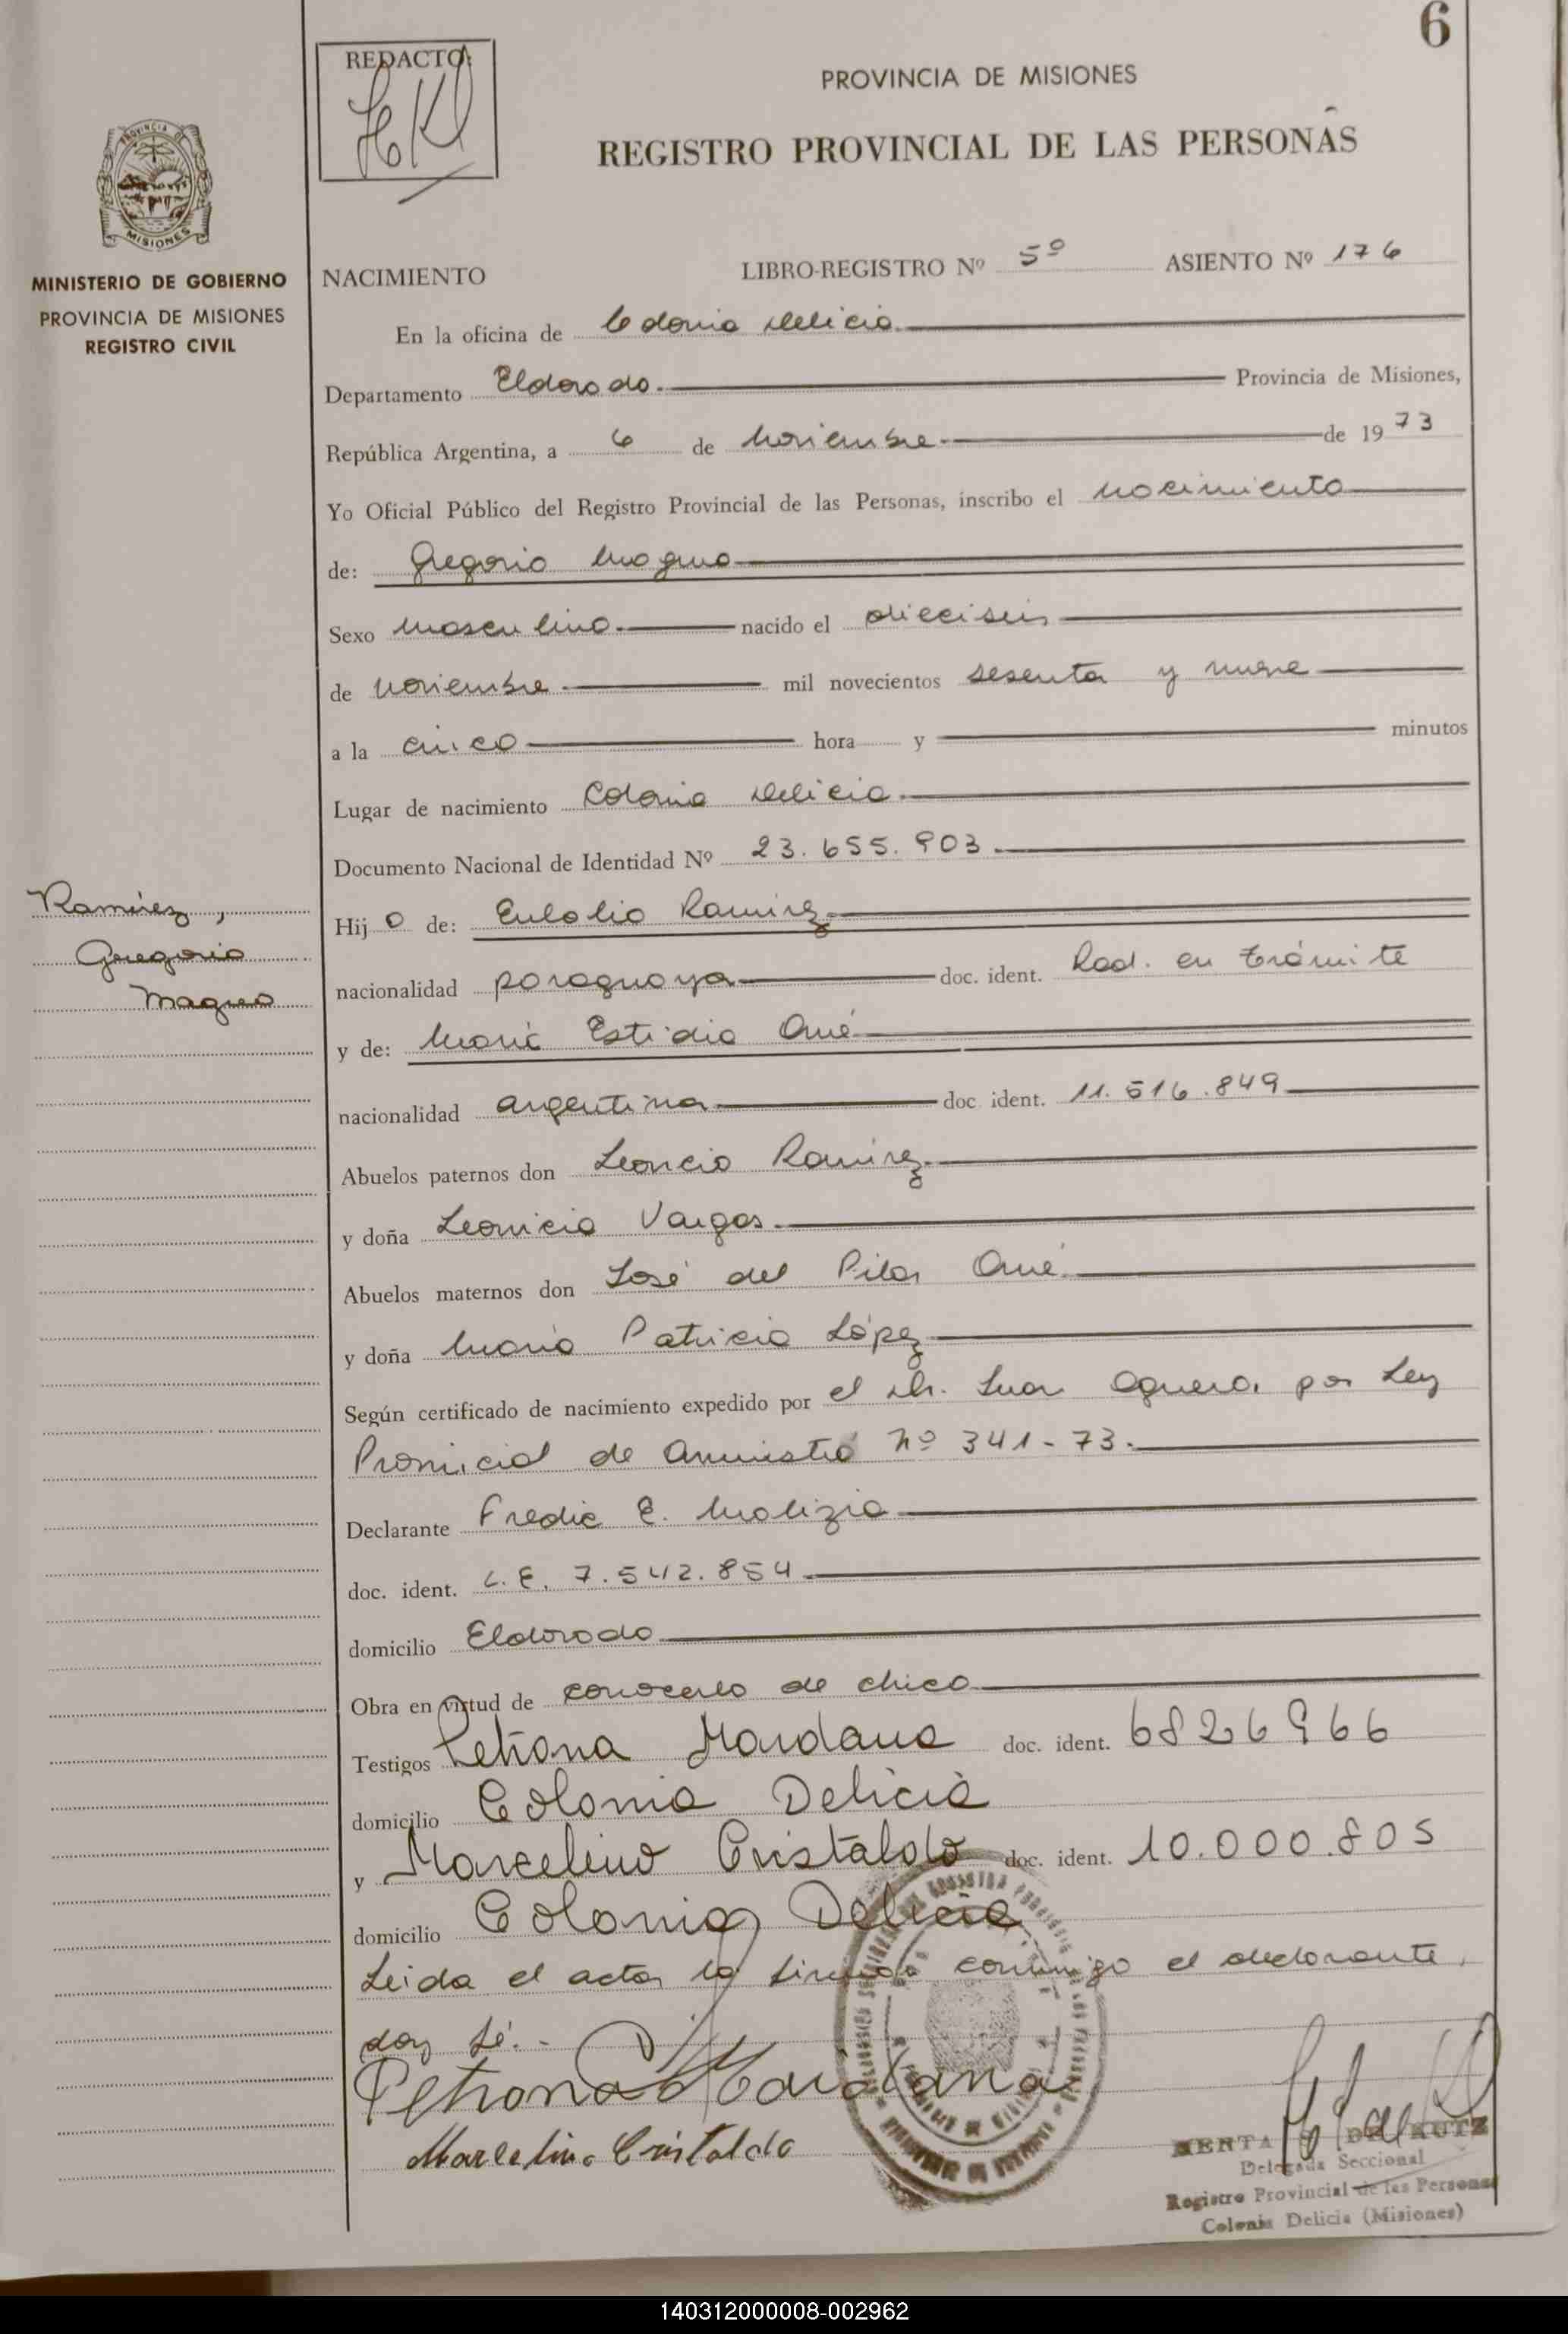 6
REDACTO:
PROVINCIA DE MISIONES
REGISTRO PROVINCIAL DE LAS PERSONAS
MISIONES
MINISTERIO DE GOBIERNO
PROVINCIA DE MISIONES
REGISTRO CIVIL
NACIMIENTO LIBRO-REGISTRO Nº 5º ASIENTO Nº 176
En la oficina de Colonia Delicia.
Departamento Eldorado. Provincia de Misiones,
República Argentina, a 6 de noviembre. de 1973
Yo Oficial Público del Registro Provincial de las Personas, inscribo el nacimiento
de: Gregorio Magno
Sexo masculino. nacido el dieciseis
de noviembre mil novecientos sesenta y nueve
a la cinco hora y minutos
Lugar de nacimiento Colonia Delicia.
Documento Nacional de Identidad Nº 23.655.903.
Ramírez,
Gregorio
Magno
Hijo de: Eulalio Ramirez
nacionalidad paraguaya doc. ident. Rad. en trámite
y de: María Estidia Oné
nacionalidad argentina doc. ident. 11.516.849
Abuelos paternos don Leoncio Ramirez.
y doña Leonicia Vargas.
Abuelos maternos don José del Pilar Oné.
y doña María Patricia López
Según certificado de nacimiento expedido por el Dr. Juan Aguero. por Ley
Provincial de Amnistía nº 341-73.
Declarante Fredie E. Malizia
doc. ident. L.E. 7.542.854
domicilio Eldorado
Obra en virtud de conocerlo de chico
Testigos Petrona Maidana doc. ident. 6826966
domicilio Colonia Delicia
y Marcelino Cristaldo doc. ident. 10.000.805
domicilio Colonia Delicia
Leida el acta la firman conmigo el declarante,
doy fé.-
Petrona Maidana
Marcelino Cristaldo
HERTA DE KUTZ
Delegada Seccional
Registro Provincial de las Personas
Colonia Delicia (Misiones)
140312000008-002962